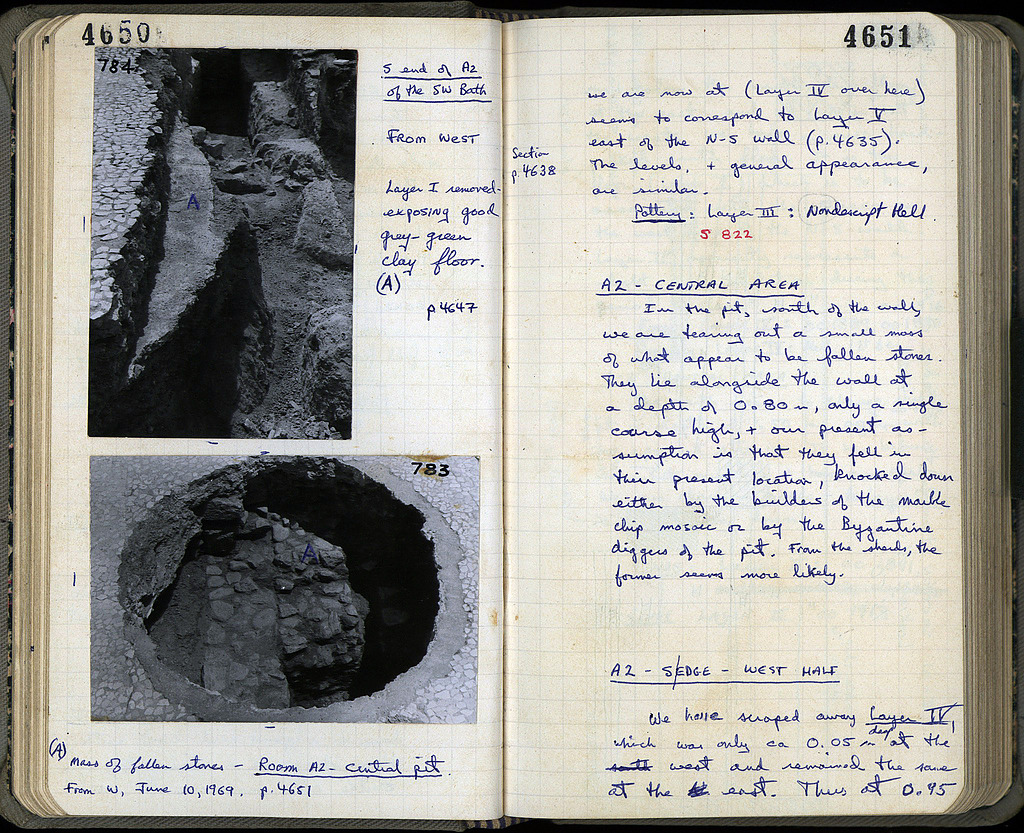 4650
784
A
S end of A2
of the SW Bath
From West
Layer I removed-
exposing good
grey-green
clay floor.
(A)
p 4647
783
A
(A)
Mass of fallen stones - Room A2 - central pit.
From W, June 10, 1969. p. 4651
4651
we are now at (Layer IV over here)
seems to correspond to Layer V
east of the N-S wall (p. 4635).
The levels, + general appearance,
are similar.
Section
p. 4638
Pottery: Layer III: Nondescript Hell.
5 822
A2 - CENTRAL AREA
In the pit, south of the wall,
we are tearing out a small mass
of what appear to be fallen stones.
They lie alongside the wall at
a depth of 0.80 m, only a single
course high, + our present as-
sumption is that they fell in
their present location, knocked down
either by the builders of the marble
chip mosaic or by the Byzantine
diggers of the pit. From the sherds, the
former seems more likely.
A2 - S/EDGE - WEST HALF
We have scraped away Layer IV,
which was only ca 0.05 m deep at the
south west and remained the same
at the east. Thus at 0.95